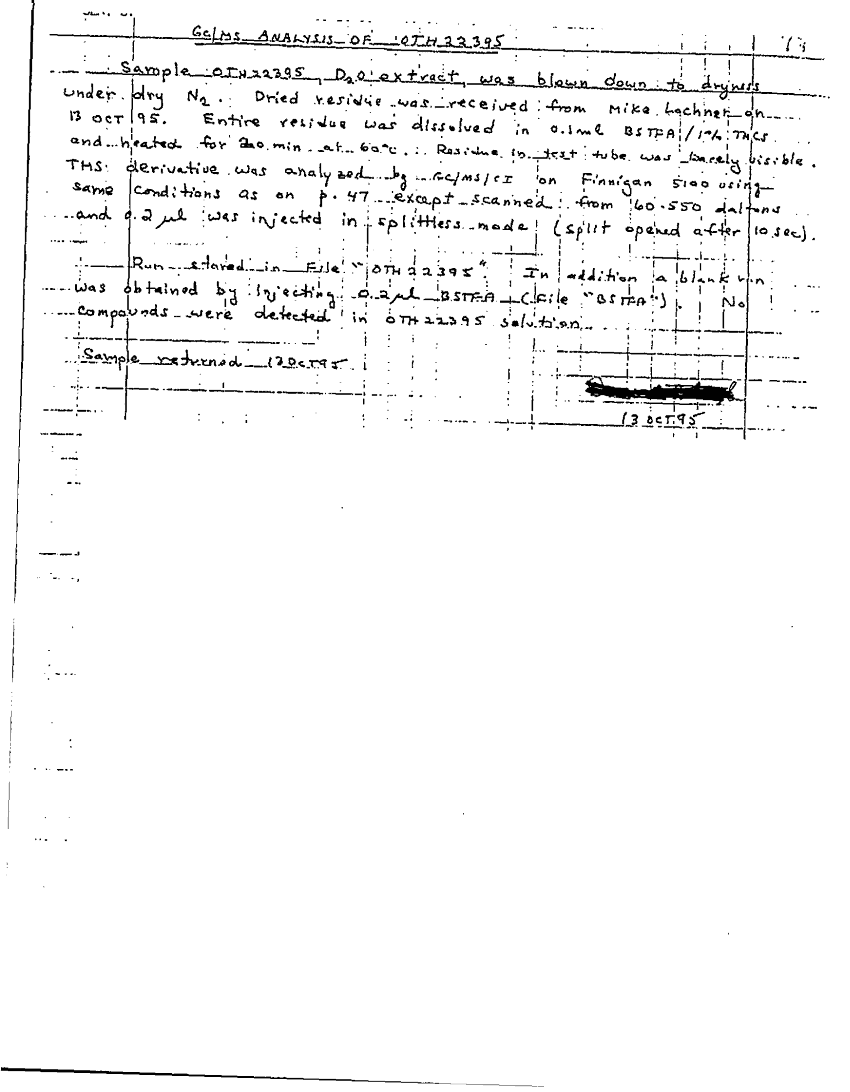 GC/MS ANALYSIS OF OTH22395
Sample OTH22395, D2O extract, was blown down to dryness
under dry N2. Dried residue was received from Mike Lochner on
13 OCT 95. Entire residue was dissolved in 0.1ml BSTFA/1% TMCS
and heated for 20 min at 60°C. Residue in test tube was barely visible.
TMS derivative was analyzed by GC/MS/CI on Finnigan 5100 using
same conditions as on p. 47 except scanned from 60-550 daltons
and 0.2 µl was injected in splittless mode (split opened after 10 sec).
Run stored in File "OTH22395". In addition a blank run
was obtained by injecting 0.2µl BSTFA (File "BSTFA"). No
compounds were detected in OTH22395 solution.
Sample returned 13OCT95
13 OCT 95